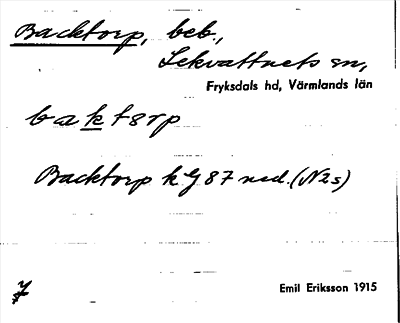 Backtorp, beb.,
Lekvattnets sn,
Fryksdals hd, Värmlands län
baktårp
Backtorp kG 87 ned. (N2s)
Emil Eriksson 1915